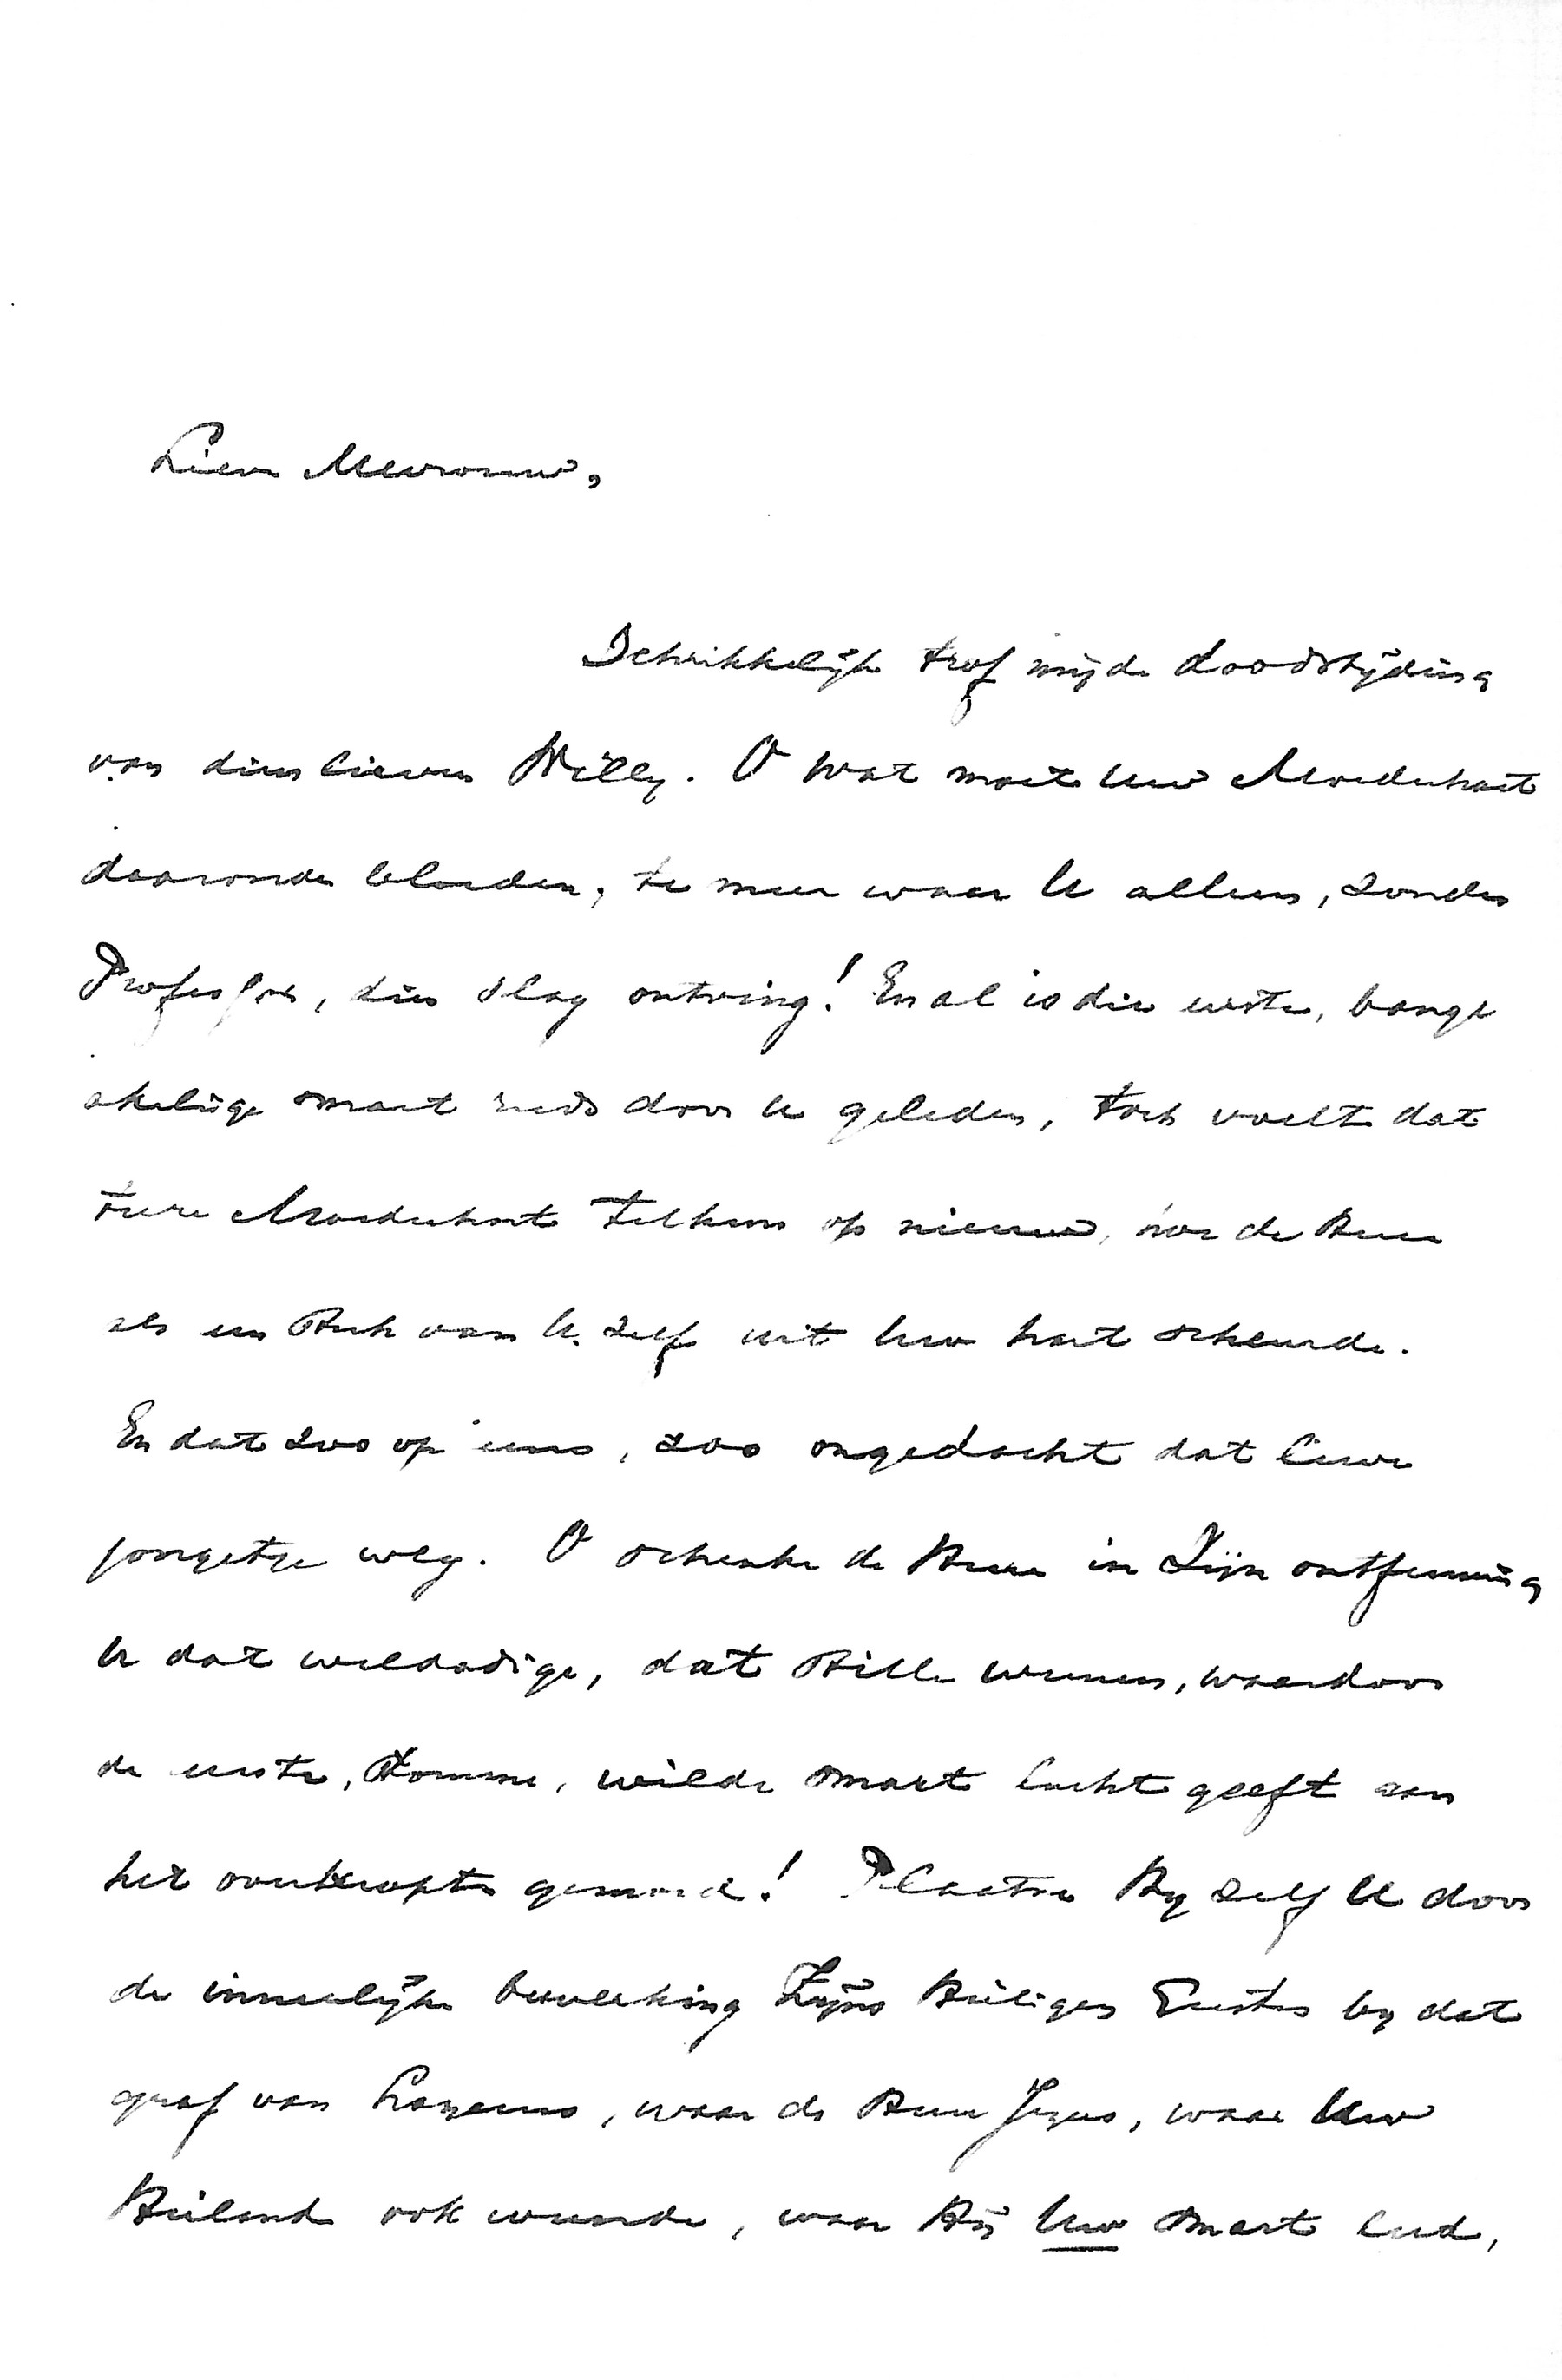 Lieve Mevrouw,
Schrikkelijk trof mij de doodstijding
van dien lieven Willy. O wat moet Uw Moederhart
daaronder bloeden, te meer waar U alleen, zonder
Professor, dien slag ontving! En al is die eerste, bange
akelige smart reeds door U geleden, toch voelt dat
teere Moederhart telkens op nieuw, hoe de Heere
als een stuk van U zelf uit Uw hart scheurde.
En dat zoo op eens, zoo ongedacht dat lieve
jongetje weg. O schenke de Heere in Zijn ontferming
U dat weldadige, dat stille weenen, waardoor
de eerste, stomme, wilde smart lucht geeft aan
het overkropte gemoed! Plaatse Hy zelf U door
de innerlijke bewerking Zijns Heiligen Geestes by dat
graf van Lazarus, waar de Heere Jezus, waar Uw
Heiland ook weende, waar Hij Uw smart leed,